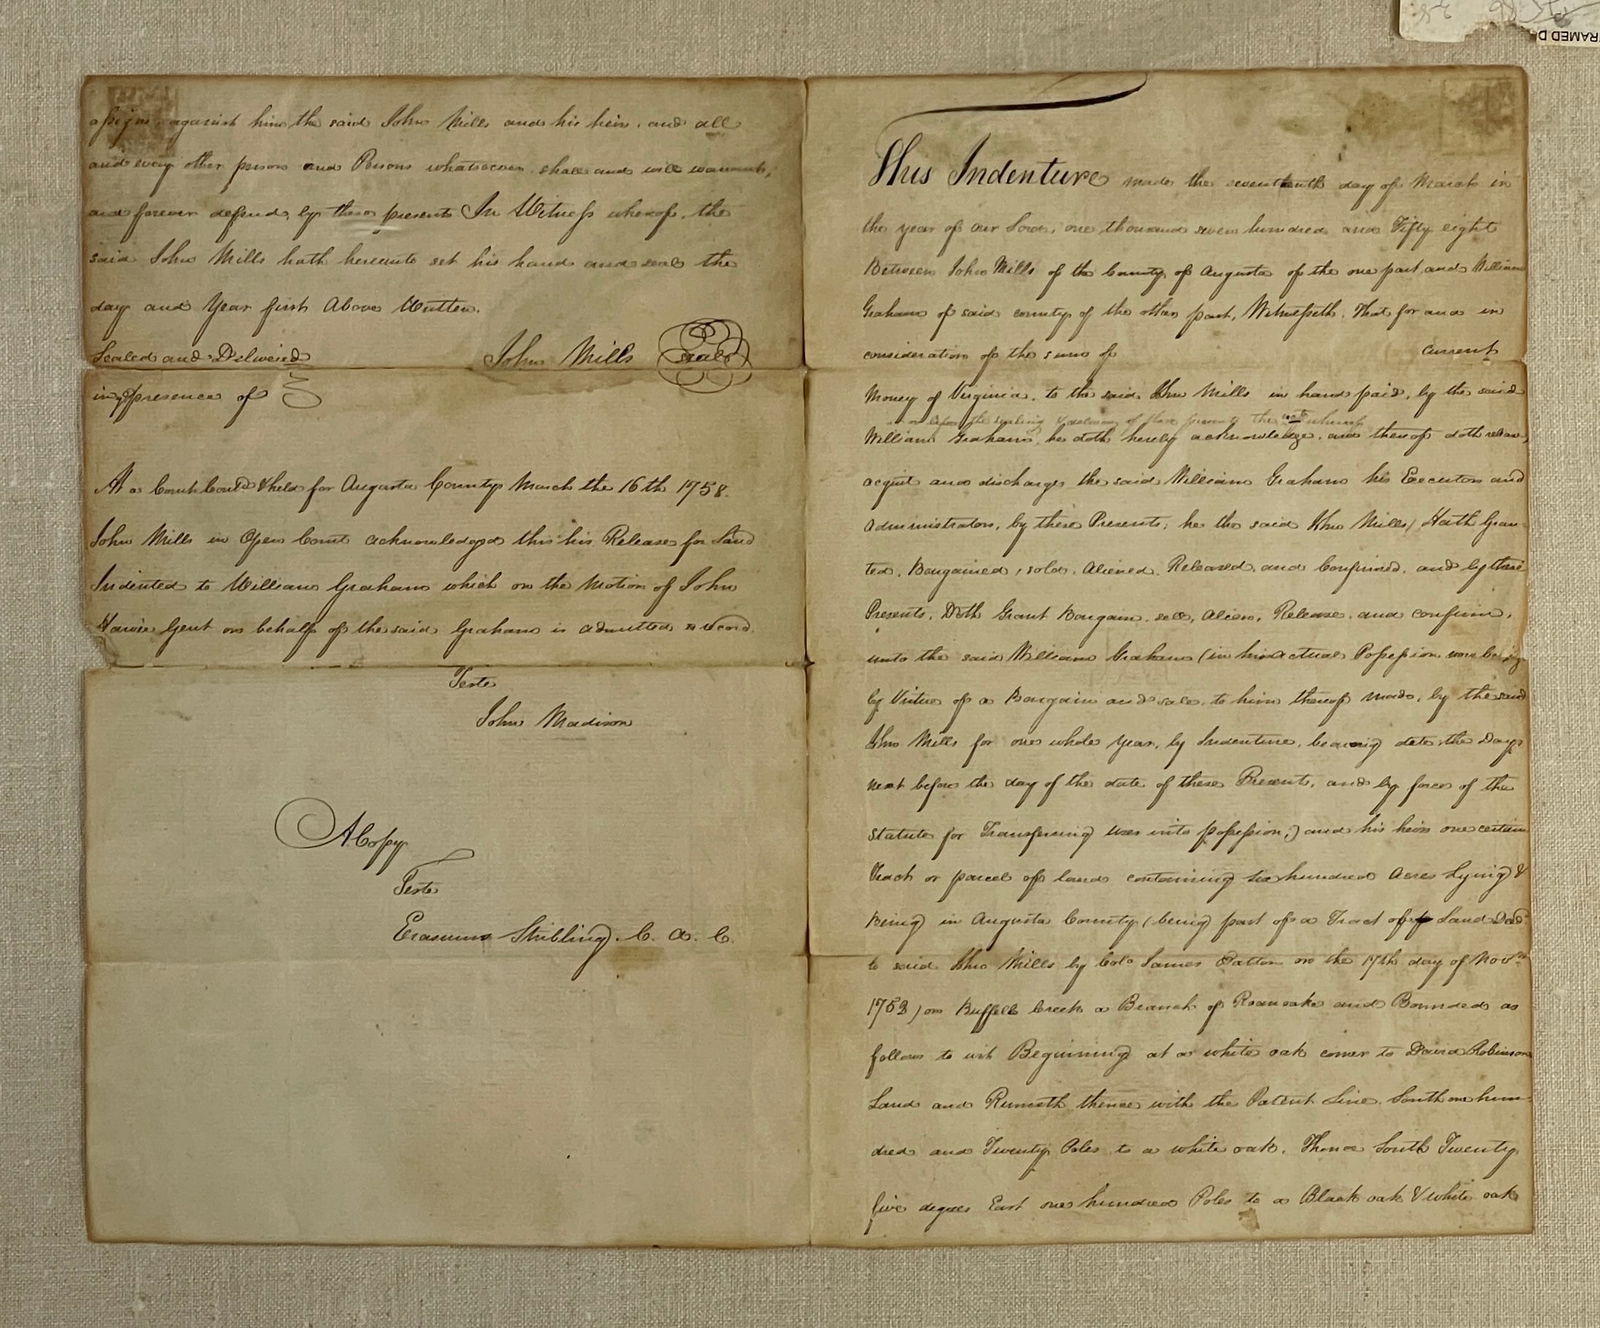 This Indenture made the seventeenth day of March in
the year of our Lord, one thousand seven hundred and Fifty eight
Between John Mills of the County of Augusta of the one part, and William
Graham of said county of the other part, Witnesseth. That for and in
consideration of the sum of current
Money of Virginia, to the said Jno Mills in hand paid, by the said
at or before the sealing & delivery of these presents the rect whereof
William Graham, he doth hereby acknowledge, and thereof doth release,
acquit and discharge the said William Graham his Executors and
Administrators, by these Presents; he the said Jno Mills, Hath Gran-
ted, Bargained, sold, Aliened, Released and Confirmed, and by these
Presents, Doth Grant Bargain, sell, Alien, Release and confirm,
unto the said William Graham (in his actual Possession now being
by Virtue of a Bargain and sale, to him thereof made, by the said
Jno Mills for one whole Year, by Indenture, bearing date the Day
next before the day of the date of these Presents, and by force of the
Statute for Transferring uses into possession;) and his heirs one certain
Tract or parcel of land containing six hundred Acres Lying &
Being in Augusta County (being part of a Tract of Land Deed
to said Jno Mills by Colo James Patton on the 17th day of Novr
1753) on Buffelo Creek a Branch of Roanoake and Bounded as
follows to wit Beginning at a white oak corner to David Robinsons
Land and Runneth thence with the Patent Line, South one hun-
dred and Twenty Poles to a white oak, Thence South Twenty
five degrees East one hundred Poles to a Black oak & white oak
assigns against him the said John Mills and his heirs, and all
and every other person and Persons whatsoever shall and will warrant,
and forever defend, by these presents In Witness whereof, the
said John Mills hath hereunto set his hand and seal the
day and Year first Above Written.
Sealed and Delivered John Mills seal
in presence of
At a Court Contd & held for Augusta County March the 16th 1758.
John Mills in Open Court acknowledged this his Release for Land
Indented to William Graham which on the Motion of John
Harvie Gent on behalf of the said Graham is admitted to record.
Teste
John Madison
A Copy
Teste
Erasmus Stribling. C. A. C.
RAMED D